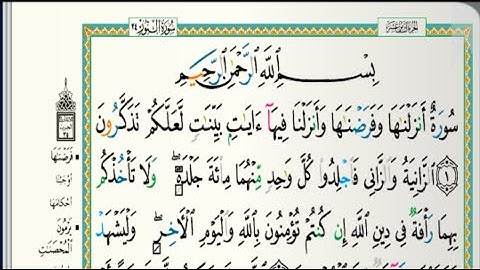 سُورَةُ النُّورِ ٢٤
بِسْمِ ٱللَّهِ ٱلرَّحْمَٰنِ ٱلرَّحِيمِ
سُورَةٌ أَنزَلْنَٰهَا وَفَرَضْنَٰهَا وَأَنزَلْنَا فِيهَآ ءَايَٰتٍۭ بَيِّنَٰتٍ لَّعَلَّكُمْ تَذَكَّرُونَ
١ ٱلزَّانِيَةُ وَٱلزَّانِى فَٱجْلِدُوا۟ كُلَّ وَٰحِدٍ مِّنْهُمَا مِا۟ئَةَ جَلْدَةٍۖ وَلَا تَأْخُذْكُم
بِهِمَا رَأْفَةٌ فِى دِينِ ٱللَّهِ إِن كُنتُمْ تُؤْمِنُونَ بِٱللَّهِ وَٱلْيَوْمِ ٱلْأَخِرِۖ وَلْيَشْهَدْ
فَرَضْنَٰهَا
أوجبنا
أحكامها
يَرْمُونَ
ٱلْمُحْصَنَٰتِ